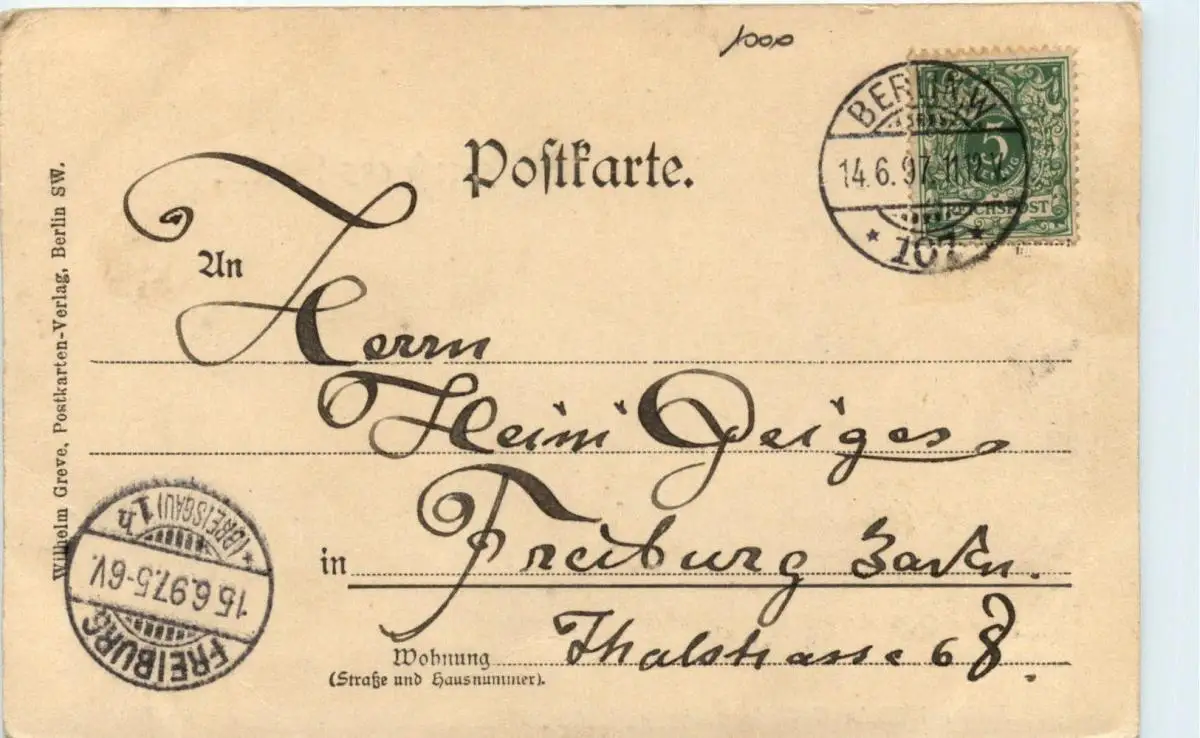 1000
BERLIN.W
14.6.97.11-12.V.
* 107 *
5
REICHSPOST
Poſtkarte.
An
Herrn
Heini Geiges
in Freiburg Baden.
Wohnung Thalstrasse 68.
(Straße und Hausnummer).
Wilhelm Greve, Postkarten-Verlag, Berlin SW.
FREIBURG
15.6.97.5-6V.
* (BREISGAU) 1h